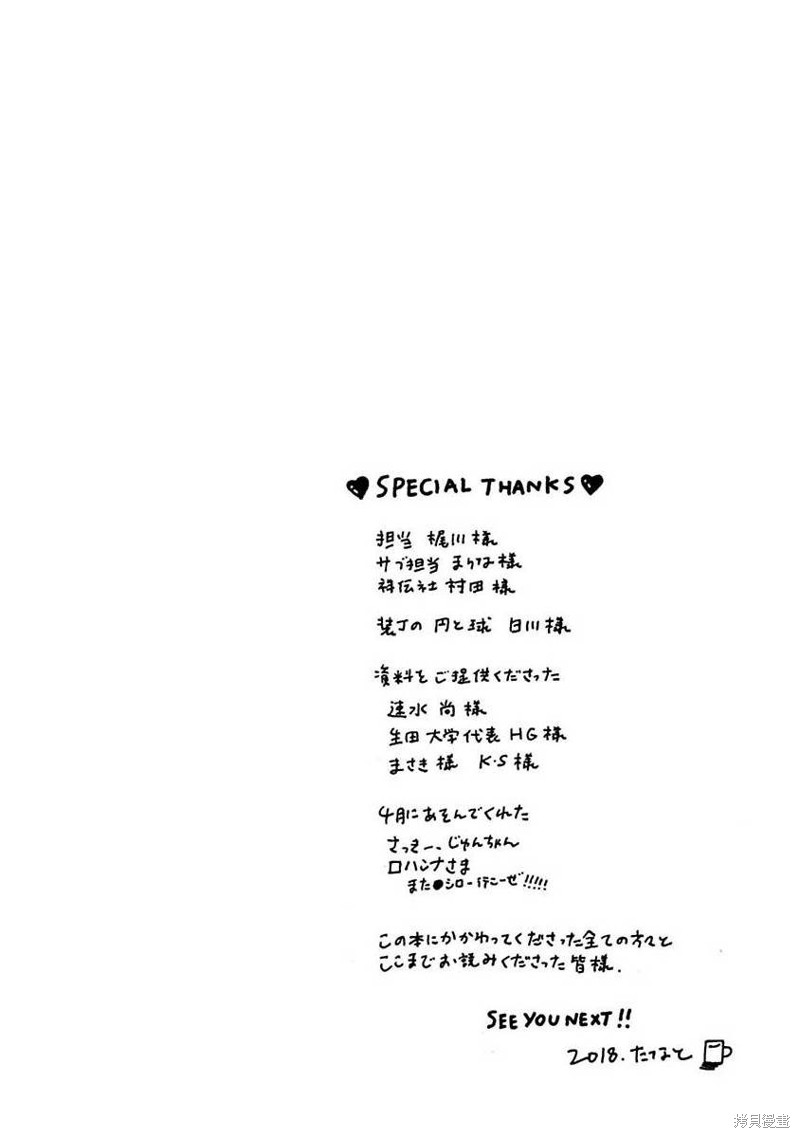 SPECIAL THANKS
担当 梶川様
サブ担当 まりな様
祥伝社 村田様
装丁の 円と球 白川様
資料をご提供くださった
速水 尚様
生田大学代表 HG様
まさき様 K・S様
4月にあそんでくれた
さっきー、じゅんちゃん
ロハンナさま
また●シロー行こーぜ!!!!!
この本にかかわってくださった全ての方々と
ここまでお読みくださった皆様.
SEE YOU NEXT!!
2018. たつもと
拷貝漫畫